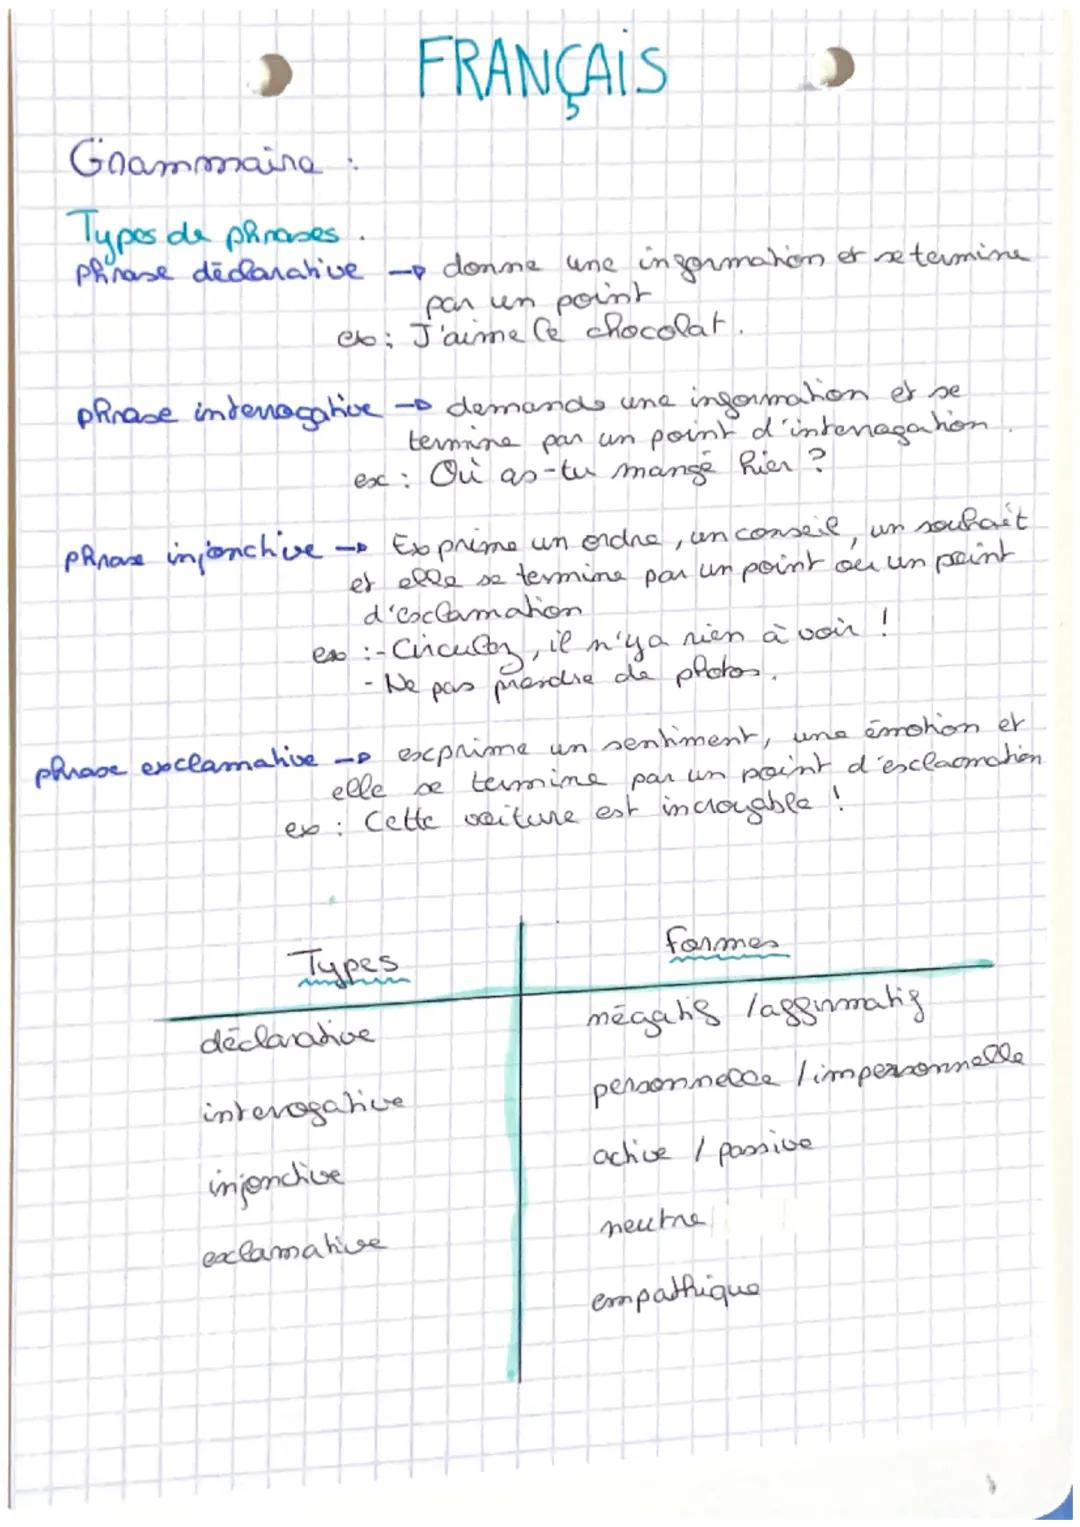 FRANÇAIS
Grammaire :
Types de phrases.
phrase déclarative → donne une information et se termine
par un point
ex : J'aime le chocolat.
phrase interrogative → demande une information et se
termine par un point d'interrogation.
ex : Où as-tu mangé hier ?
phrase injonctive → Exprime un ordre, un conseil, un souhait
et elle se termine par un point ou un point
d'exclamation
ex : - Circulez, il n'y a rien à voir !
- Ne pas prendre de photos.
phrase exclamative → exprime un sentiment, une émotion et
elle se termine par un point d'exclaomation
ex : Cette voiture est incroyable !
Types
formes
déclarative
négatif / affirmatif
interogative
personnelle / impersonnelle
injonctive
active / passive
exclamative
neutre
empathique